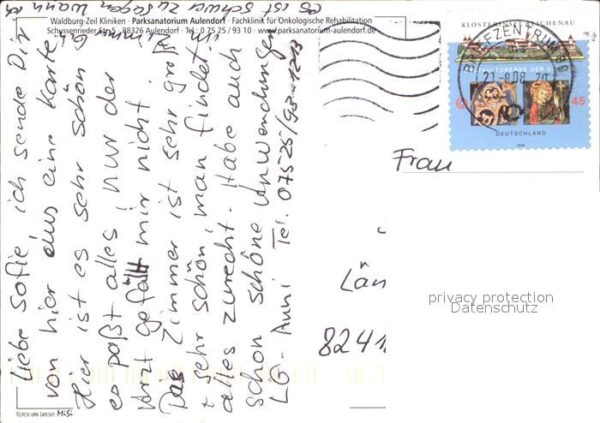 Waldburg-Zeil Kliniken · Parksanatorium Aulendorf · Fachklinik für Onkologische Rehabilitation
Schussenrieder Str. 5 · 88326 Aulendorf · Tel.: 0 75 25 / 93 10 · www.parksanatorium-aulendorf.de
Liebe Sofie, ich sende Dir
von hier aus eine Karte.
Hier ist es sehr schön
es paßt alles, nur der
Arzt gefällt mir nicht.
Das Zimmer ist sehr groß
+ sehr schön, man findet sich
alles zurecht. Habe auch
schon schöne Anwendungen
LG - Anni Tel. 07525/93-1213
es ist schwer zu sagen wann ich
KLOSTERINSEL REICHENAU
BRIEFZENTRUM
WELTKULTURERBE DER UNESCO
45
DEUTSCHLAND
Frau
Län
8241
privacy protection
Datenschutz
FOTOS UND LAYOUT: MiSi